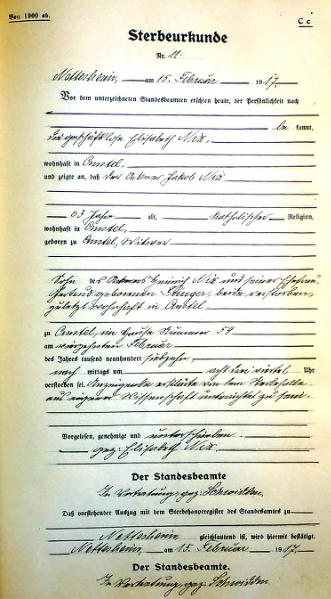 Von 1900 ab.
C c
Sterbeurkunde
Nr. 11
Nettersheim, am 15. Februar 1917.
Vor dem unterzeichneten Standesbeamten erschien heute, der Persönlichkeit nach
be kannt,
die geschäftslose Elisabeth Mix,
wohnhaft in
und zeigte an, daß der Ackerer Jakob Mix,
63 Jahre alt, katholischer Religion,
wohnhaft in
geboren zu Witwer
Sohn des Ackerers Heinrich Mix und seiner Ehefrau
Gertrud geborenen beide verstorben,
zuletzt wohnhaft in
zu im Hause Nummer 54
am vierzehnten Februar
des Jahres tausend neunhundert siebzehn
nach mittags um acht ein viertel Uhr
verstorben sei. Anzeigende erklärte von dem Sterbefalle
aus eigener Wissenschaft unterrichtet zu sein.
Vorgelesen, genehmigt und unterschrieben
gez: Elisabeth Mix.
Der Standesbeamte
In Vertretung: gez:
Daß vorstehender Auszug mit dem Sterbehauptregister des Standesamtes zu
Nettersheim gleichlautend ist, wird hiermit bestätigt.
Nettersheim, am 15. Februar 1917.
Der Standesbeamte.
In Vertretung gez: